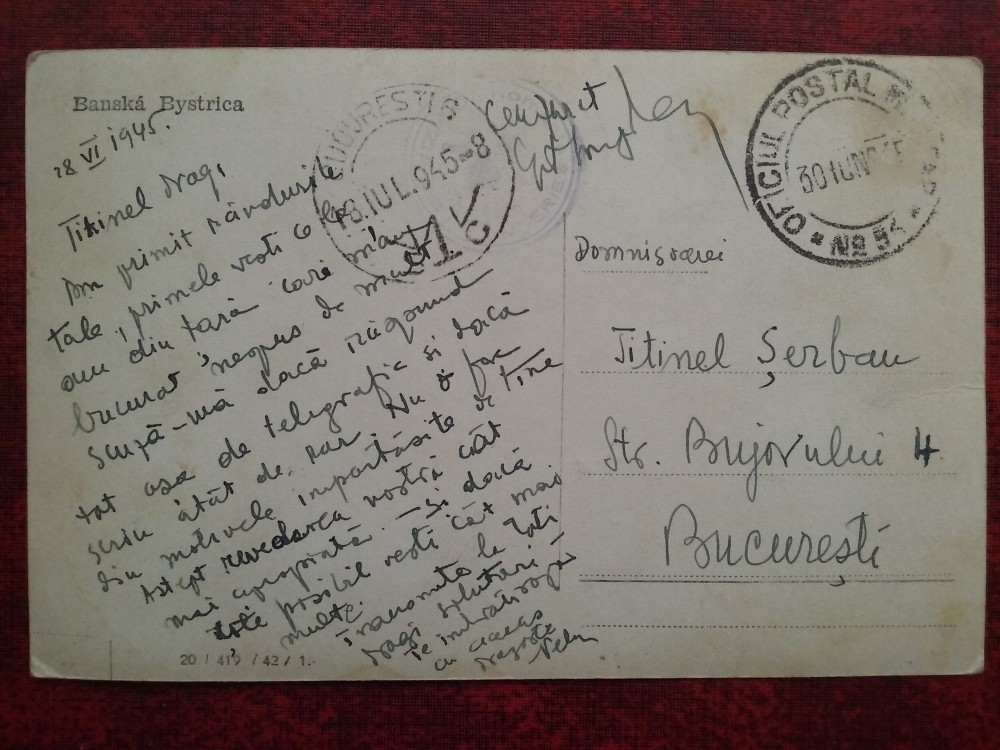 Banská Bystrica
28 VI 1945.
Titinel dragi,
Am primit rândurile
tale, primele vesti ce le
am din țară care m'au
bucurat nespus de mult
scuză-mă dacă răspund
tot așa de telegrafic si dacă
scriu atât de rar. Nu o fac
din motivele împartăsite de tine
Astept revederea vostră cât
mai apropiată. - Si dacă
este posibil vesti cât mai
multe.
Transmite la toti
dragi salutări
Te îmbrățișează
cu aceeas
dragoste
20 / 419 / 42 / 1.-
BUCUREȘTI 6
13.IUL.945-8
1
C
Cenzurat
OFICIUL POSTAL
30 IUN 945
No 54
Domnișoarei
Titinel Șerban
Str. Bujorului 4
București